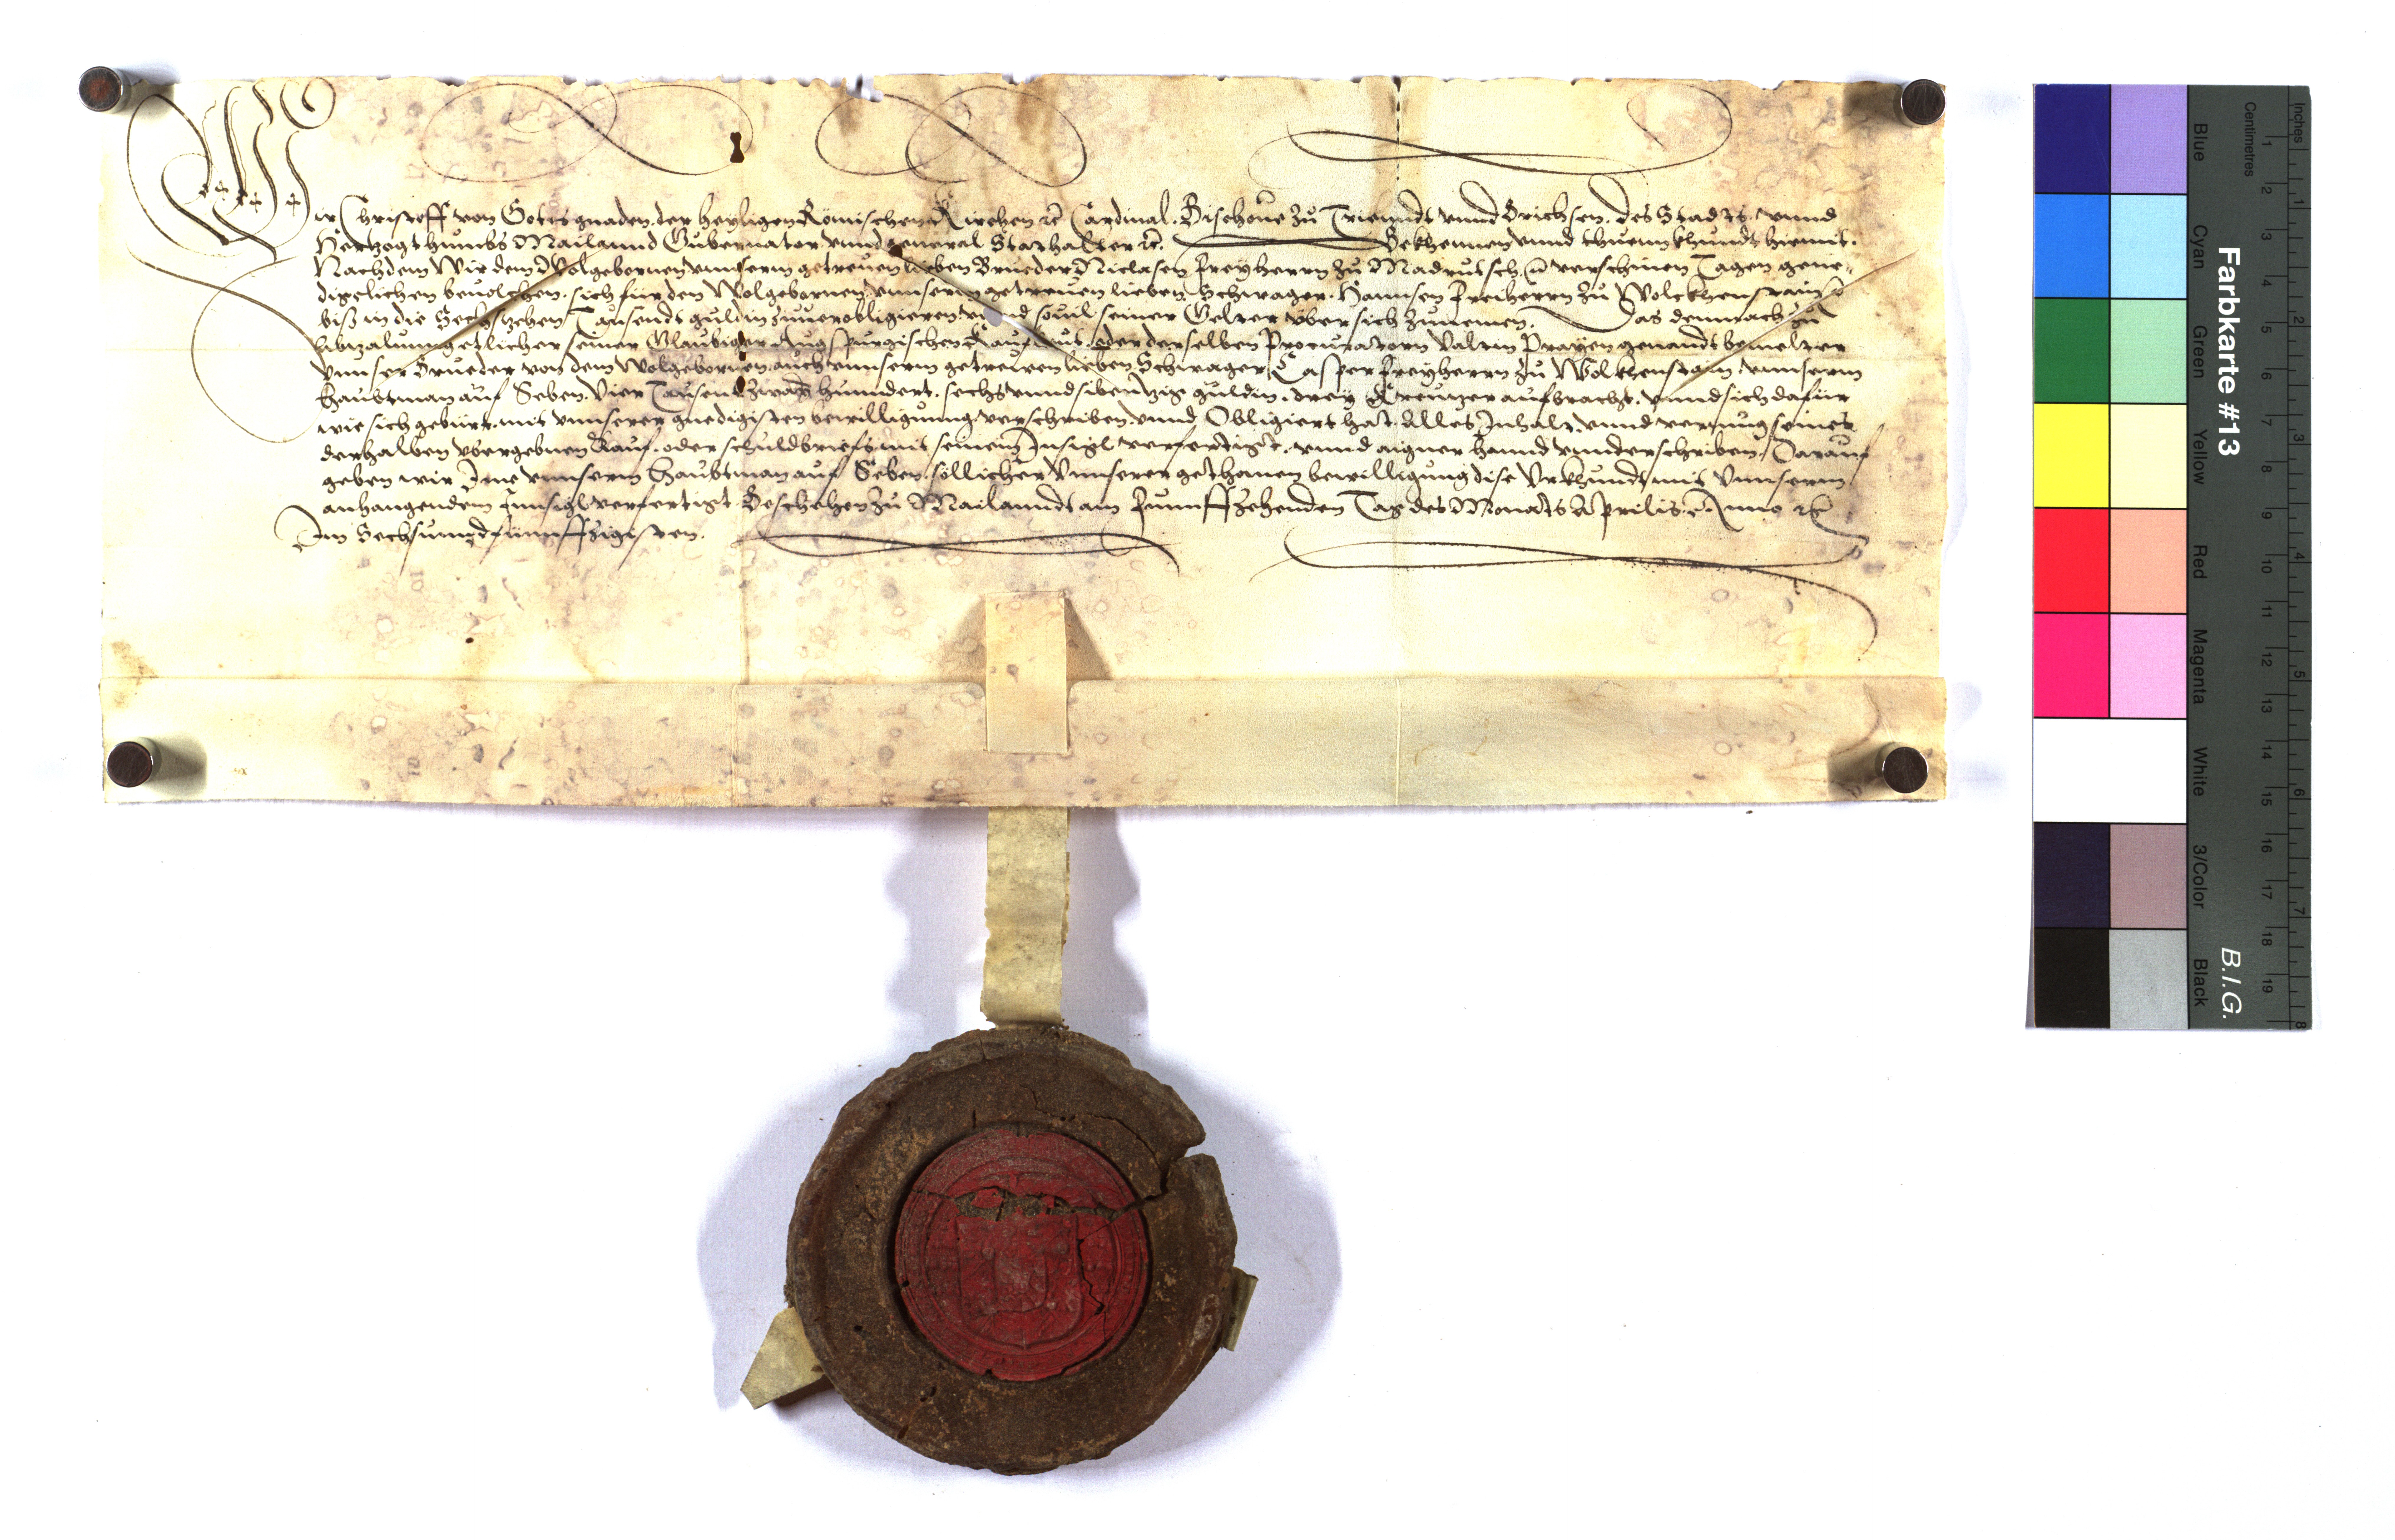 Wir Christoff von Gottes gnaden, der heyligen Römischen Kirchen &c Cardinal. Bischoue zu Triennt vnnd Brichsen. des Stadts vnnd
Hertzogthumbs Mailannd Gubernator vnnd general Stathalter &c. Bekhennen vnnd thuenn khundt hiemit.
Nachdem Wir dem Wolgebornen vnnserm getreuen lieben Brueder Niclasen Freyherrn zu Madrutsch, in verschinen Tagen gene-
digclichen beuolchen, sich für den Wolgebornen vnnserm getreuen lieben Schwager. Hannsen Freiherrn zu Wolckhenstain &c
biß in die Sechtzehen Tausendt guldin zuuerobligieren vnnd souil seiner Gelter über sich zunemen. Das demnach zu
abzalung etlicher seiner Glaubiger Augspurgischen Kaufleut, oder derselben Procuratorn Valtin Prayen genandt bemelter
vnnser Brueder von dem Wolgebornen auch vnnserm getreuen lieben Schwager Casper Freyherrn zu Wolkhenstain vnnserm
haubtman auf Seben. Vier Tausent Zway hunndert. sechs vnnd sibentzig guldin. drey Kreutzer aufbracht. vnnd sich dafür
wie sich gebürt. mit vnnserer gnedigisten bewilligung verschriben vnnd Obligiert hat. Alles Inhalt vnnd vermüg seines
derhalben vbergebnen Kauf. oder schuldbriefs mit seinem Insigl verfertigt. vnnd aigner hannd vnnderschriben. Darauf
geben wir Ime vnnserm Haubtman auf Seben söllicher vnnserer gethanen bewilligung dise Vrkhundt mit vnnserm
anhangendem Innsigl verfertigt Beschehen zu Mailanndt am Funnffzehenden Tag des Monats Aprilis. Anno &c
Im Sechsunndfünnffzigisten.
Farbkarte #13
B.I.G.
Blue
Cyan
Green
Yellow
Red
Magenta
White
3/Color
Black
Centimetres
1 2 3 4 5 6 7 8 9 10 11 12 13 14 15 16 17 18 19
Inches
1 2 3 4 5 6 7 8